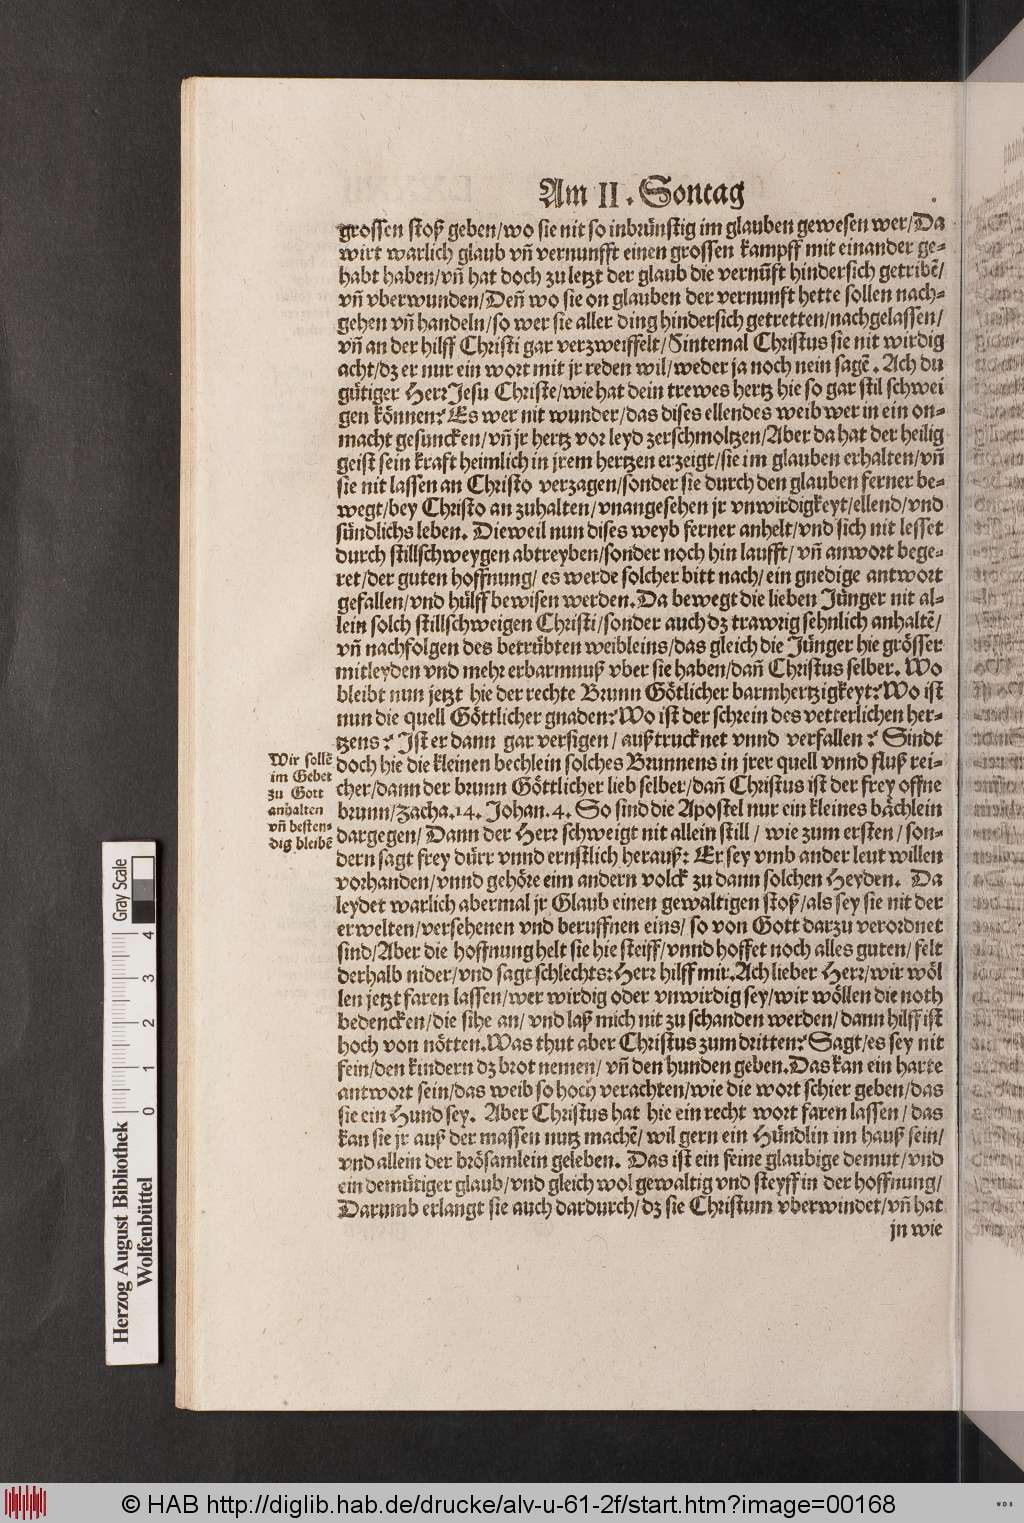 Am II. Sontag
grossen stoß geben/wo sie nit so inbrünstig im glauben gewesen wer/Da
wirt warlich glaub vñ vernunfft einen grossen kampff mit einander ge-
habt haben/vñ hat doch zu letzt der glaub die vernũft hindersich getribẽ/
vñ vberwunden/Deñ wo sie on glauben der vernunft hette sollen nach-
gehen vñ handeln/so wer sie aller ding hindersich getretten/nachgelassen/
vñ an der hilff Christi gar verzweiffelt/Sintemal Christus sie nit wirdig
acht/dz er nur ein wort mit jr reden wil/weder ja noch nein sagẽ. Ach du
gütiger Herr Jesu Christe/wie hat dein trewes hertz hie so gar stil schwei
gen können? Es wer nit wunder/das dises ellendes weib wer in ein on-
macht gesuncken/vñ jr hertz vor leyd zerschmoltzen/Aber da hat der heilig
geist sein kraft heimlich in jrem hertzen erzeigt/sie im glauben erhalten/vñ
sie nit lassen an Christo verzagen/sonder sie durch den glauben ferner be-
wegt/bey Christo an zuhalten/vnangesehen jr vnwirdigkeyt/ellend/vnd
sündlichs leben. Dieweil nun dises weyb ferner anhelt/vnd sich nit lesset
durch stillschweygen abtreyben/sonder noch hin laufft/vñ anwort bege-
ret/der guten hoffnung/es werde solcher bitt nach/ein gnedige antwort
gefallen/vnd hülff bewisen werden. Da bewegt die lieben Jünger nit al-
lein solch stillschweigen Christi/sonder auch dz trawrig sehnlich anhaltẽ/
vñ nachfolgen des betrübten weibleins/das gleich die Jünger hie grösser
mitleyden vnd mehr erbarmnuß vber sie haben/dañ Christus selber. Wo
bleibt nun jetzt hie der rechte Brunn Götlicher barmhertzigkeyt? Wo ist
nun die quell Göttlicher gnaden? Wo ist der schrein des vetterlichen her-
tzens? Ist er dann gar versigen/außtrucknet vnnd verfallen? Sindt
doch hie die kleinen bechlein solches Brunnens in jrer quell vnnd fluß rei-
cher/dann der brunn Göttlicher lieb selber/dañ Christus ist der frey offne
brunn/Zacha.14. Johan.4. So sind die Apostel nur ein kleines bächlein
dargegen/Dann der Herr schweigt nit allein still/wie zum ersten/son-
dern sagt frey dürr vnnd ernstlich herauß: Er sey vmb ander leut willen
vorhanden/vnnd gehöre eim andern volck zu dann solchen Heyden. Da
leydet warlich abermal jr Glaub einen gewaltigen stoß/als sey sie nit der
erwelten/versehenen vnd beruffnen eins/so von Gott darzu verordnet
sind/Aber die hoffnung helt sie hie steiff/vnnd hoffet noch alles guten/felt
derhalb nider/vnd sagt schlechts: Herr hilff mir. Ach lieber Herr/wir wöl
len jetzt faren lassen/wer wirdig oder vnwirdig sey/wir wöllen die noth
bedencken/die sihe an/vnd laß mich nit zu schanden werden/dann hilff ist
hoch von nötten. Was thut aber Christus zum dritten? Sagt/es sey nit
fein/den kindern dz brot nemen/vñ den hunden geben. Das kan ein harte
antwort sein/das weib so hoch verachten/wie die wort schier geben/das
sie ein Hund sey. Aber Christus hat hie ein recht wort faren lassen/das
kan sie jr auß der massen nutz machẽ/wil gern ein Hündlin im hauß sein/
vnd allein der brösamlein geleben. Das ist ein feine glaubige demut/vnd
ein demütiger glaub/vnd gleich wol gewaltig vnd steyff in der hoffnung/
Darumb erlangt sie auch dardurch/dz sie Christum vberwindet/vñ hat
jn wie
Wir sollẽ
im Gebet
zu Gott
anhalten
vñ besten-
dig bleibẽ
Gray Scale
4
3
2
1
0
Herzog August Bibliothek
Wolfenbüttel
© HAB http://diglib.hab.de/drucke/alv-u-61-2f/start.htm?image=00168
WDB